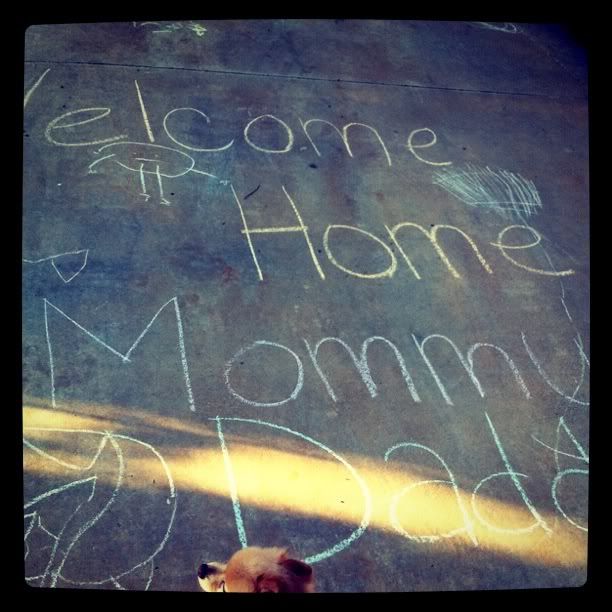 Welcome
Home
Mommy
Dadd